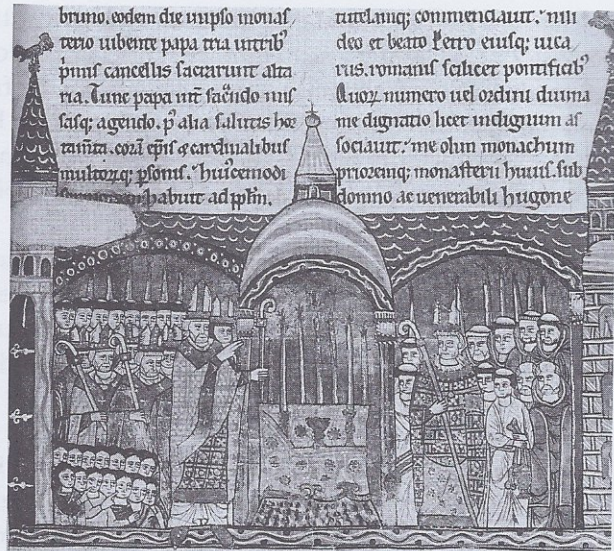 bruno. eodem die in ipso monas
terio iubente papa tria in trib'
primis cancellis sacrarunt alta
ria. Tunc papa int sac̄ndo mis
sasq; agendo. p' alia salutis hor
tam̄ta. corā ep̄is & cardinalibus
multorq; p̄sonis. huiꝰcemodi
habuit ad pp̄lm.
tutelamq; commendauit. nisi
deo et beato Petro eiusq; uica
riis. romanis scilicet pontificib'
Quoꝝ numero uel ordini diuina
me dignatio licet indignum as
sociauit. me olim monachum
prioremq; monasterii huius. sub
domno ac venerabili hugone